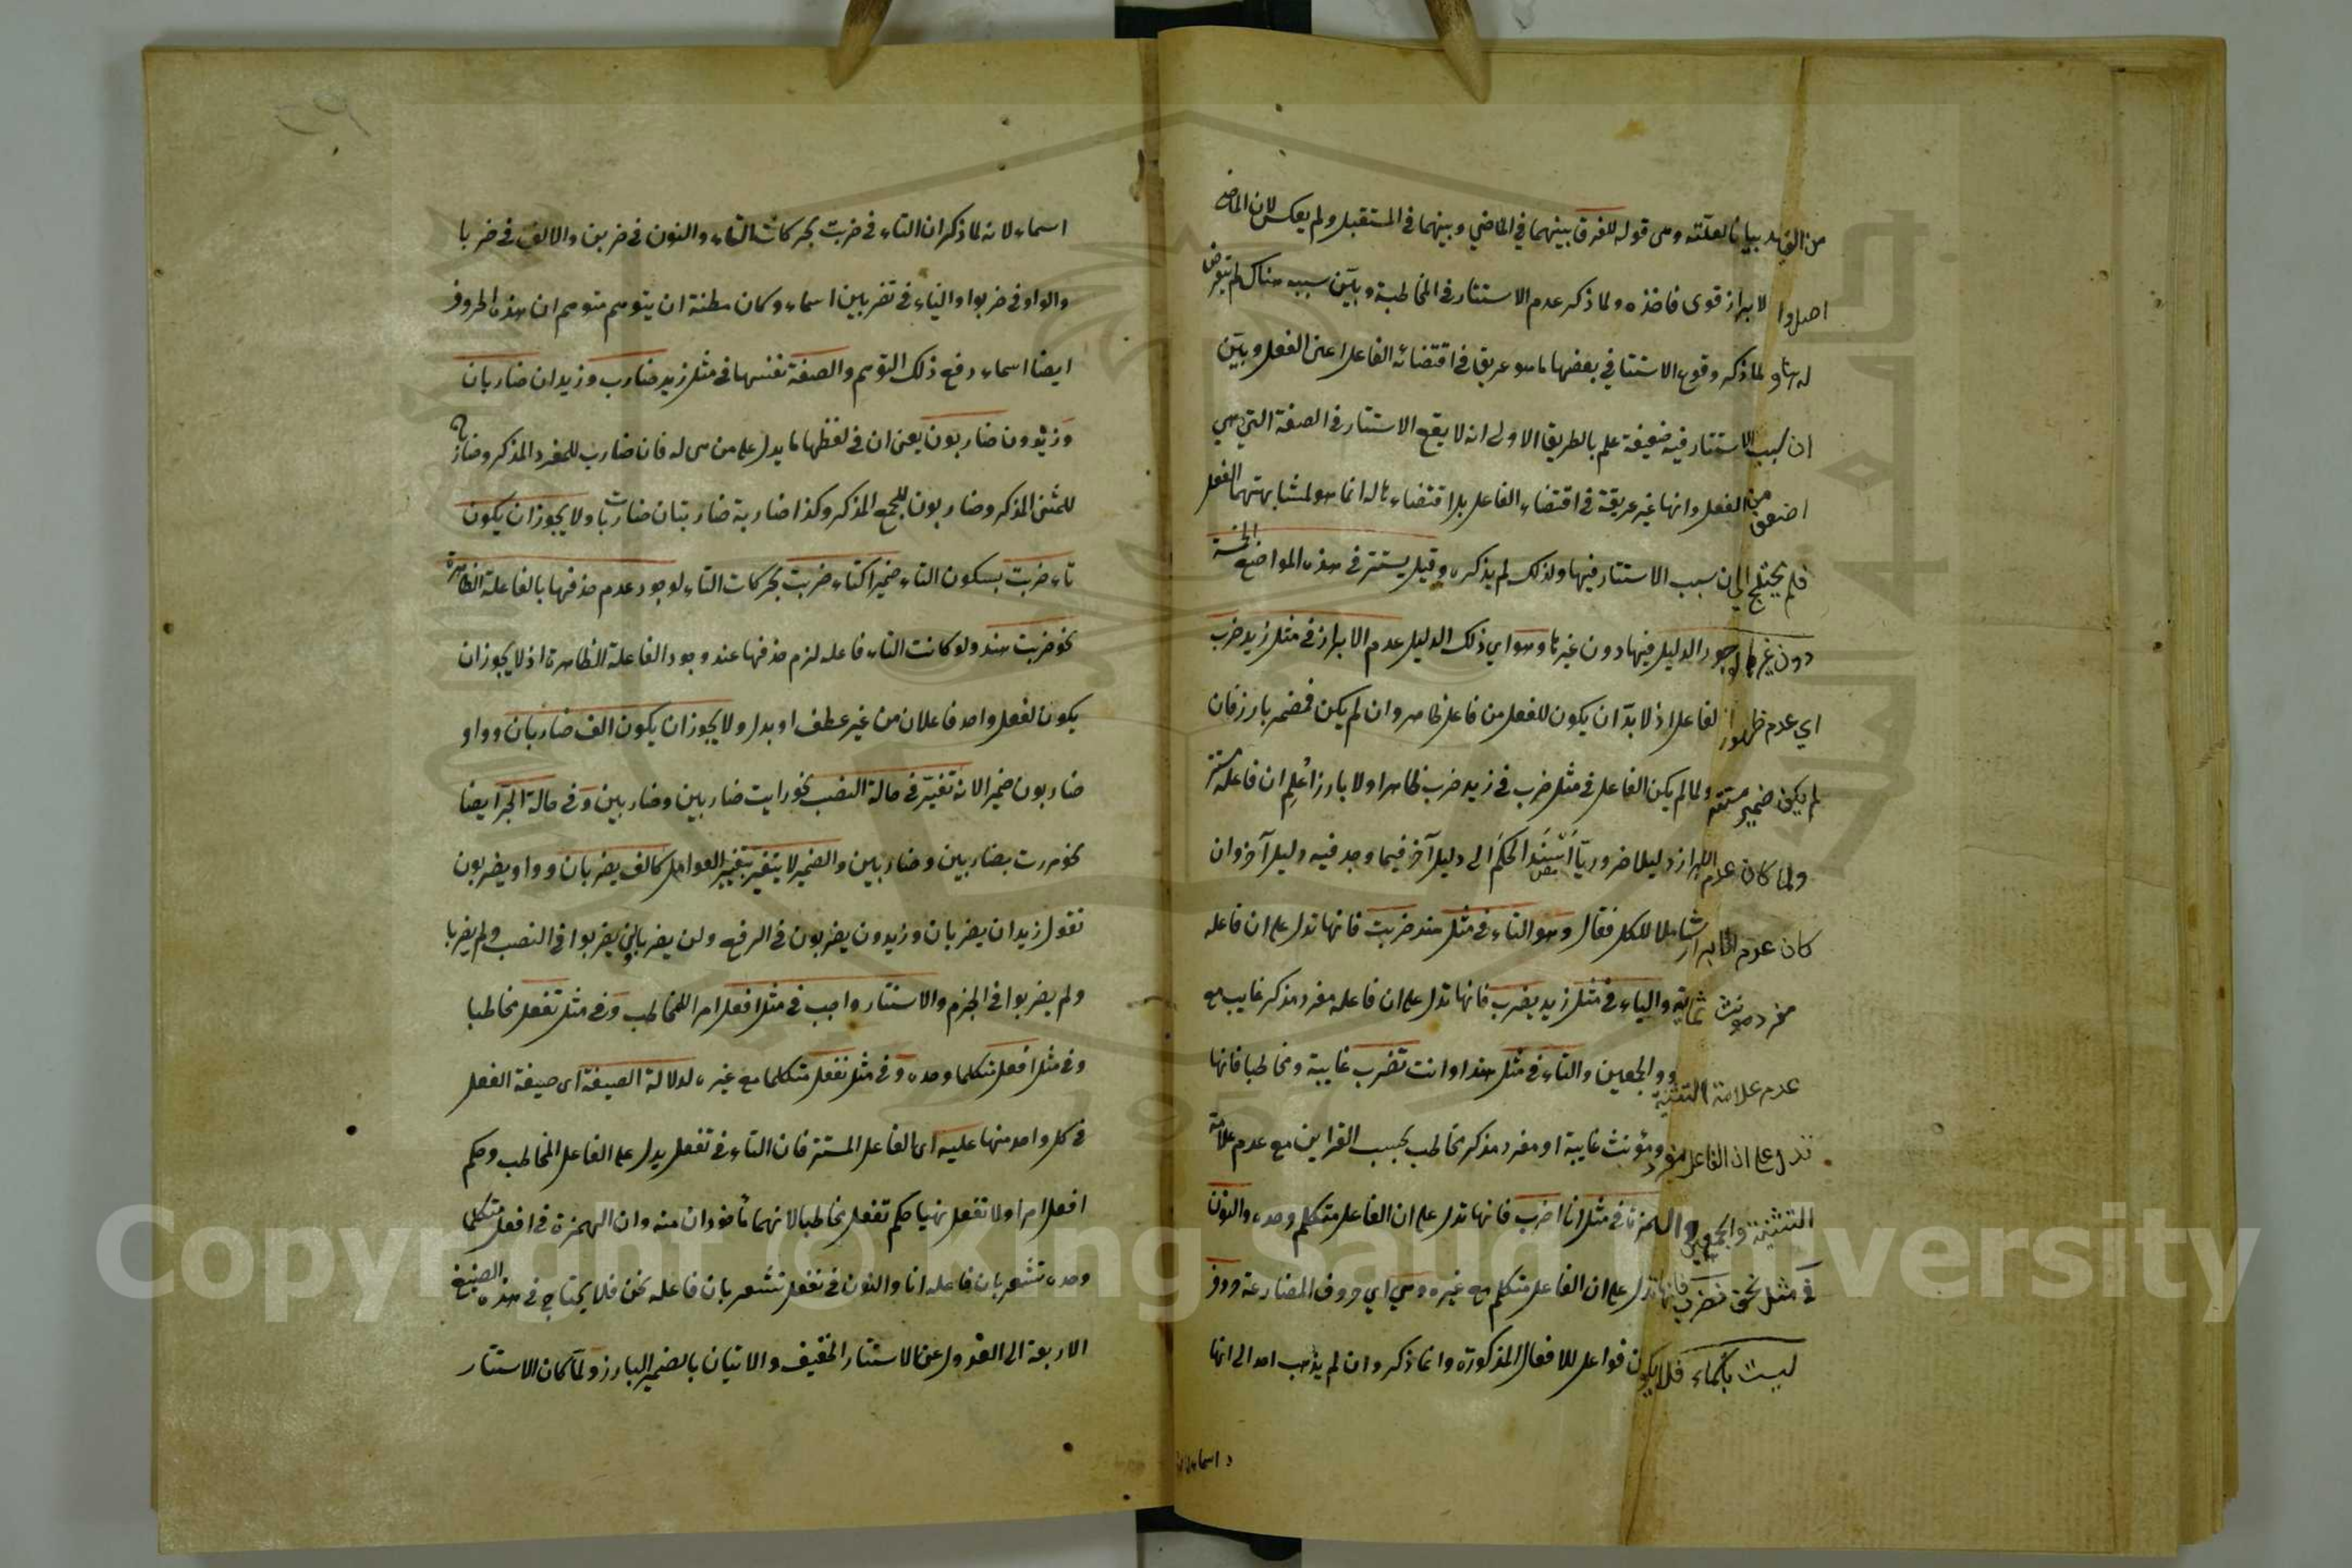 من الفهد بيانا لعلته وهى قوله للفرق بينهما في الماضي وبينهما في المستقبل ولم يعكس لان الماضى
اصل والابراز قوى فاخذه ولما ذكر عدم الاستتار في المخاطبة وبيّن سببه هناك لم يتعرض
له هنا ولما ذكر وقوع الاستتار في بعضها ما هو عريق في اقتضائه الفاعل اعنى الفعل وبيّن
ان سبب الاستتار فيه ضعيفة علم بالطريق الاولى انه لا يقع الاستتار في الصفة التي هي
اضعف من الفعل وانها غير عريقة في اقتضاء الفاعل بل اقتضاءها له انما هو لمشابهتهما الفعل
فلم يحتج الى ان سبب الاستتار فيها ولذلك لم يذكره وقيل يستتر في هذه المواضع الخمسة
دون غيرها لوجود الدليل فيها دون غيرها وهو اي ذلك الدليل عدم الابراز في مثل زيد ضرب
اي عدم ظهور الفاعل اذ لا بدّ ان يكون للفعل من فاعل ظاهر وان لم يكن فضمير بارز فان
لم يكن ضمير مستتر ولما لم يكن الفاعل في مثل ضرب في زيد ضرب ظاهرا ولا بارزا عُلِم ان فاعله مستتر
ولما كان عدم الابراز دليلا ضروريّا اُسْنِدَ الحكم الى دليل آخر فيما وجد فيه دليل آخر وان
كان عدم الابراز شاملا للكل فقال وهو التاء في مثل هند ضربت فانها تدل على ان فاعله
مفرد مونث غايبة والياء في مثل زيد يضرب فانها تدل على ان فاعله مفرد مذكر غايب مع
عدم علامة التثنية والجمعين والتاء في مثل هند او انت تضرب غايبة ومخاطبا فانها
تدل على ان الفاعل مفرد ومؤنث غايبة او مفرد مذكر مخاطب بحسب القراين مع عدم علامة
التثنية والجمعين والهمزة في مثل انا اضرب فانها تدل على ان الفاعل متكلم وحده والنون
في مثل نحن نضرب فانها تدل على ان الفاعل متكلم مع غيره وهي اي حروف المضارعة حروف
ليست باسماء فلا يكون فواعل للافعال المذكورة وانما ذكر وان لم يذهب احد الى انها
اسماء لانه لما ذكر ان التاء في ضربت بحركات التاء والنون في ضربن والالف في ضربا
والواو في ضربوا والياء في تضربين اسماء وكان مظنة ان يتوهم متوهم ان هذه الحروف
ايضا اسماء دفع ذلك التوهم والصفة نفسها في مثل زيد ضارب وزيدان ضاربان
وزيدون ضاربون يعنى ان في لفظها ما يدل على من هى له فان ضارب للمفرد المذكر وضاربان
للمثنى المذكر وضاربون للجمع المذكر وكذا ضاربة ضاربتان ضاربات ولا يجوز ان يكون
تاء ضربت بسكون التاء ضميرا كتاء ضربت بحركات التاء لوجود عدم حذفها بالفاعلة الظاهرة
نحو ضربت هند ولو كانت التاء فاعله لزم حذفها عند وجود الفاعلة الظاهرة اذ لا يجوز ان
يكون لفعل واحد فاعلان من غير عطف او بدل ولا يجوز ان يكون الف ضاربان وواو
ضاربون ضميرا لانه تغيّر في حالة النصب نحو رايت ضاربين وضاربين وفى حالة الجرّ ايضا
نحو مررت بضاربين وضاربين والضمير لا يتغير بتغيير العوامل كالف يضربان وواو يضربون
تقول زيدان يضربان وزيدون يضربون في الرفع ولن يضربا ولن يضربوا في النصب ولم يضربا
ولم يضربوا في الجزم والاستتار واجب في مثل افعل امرا للمخاطب وفى مثل تفعل مخاطبا
وفى مثل افعل متكلما وحده وفى مثل نفعل متكلما مع غيره لدلالة الصيغة اى صيغة الفعل
في كل واحد منها عليه اى الفاعل المستتر فان التاء في تفعل يدل على الفاعل المخاطب وحكم
افعل امرا ولا تفعل نهيا حكم تفعل مخاطبا لانهما مأخوذان منه وان الهمزة في افعل متكلما
وحده تشعر بان فاعله انا والنون في نفعل تشعر بان فاعله نحن فلا يحتاج في هذه الصيغ
الاربعة الى العدول عن الاستتار الخفيف والاتيان بالضمير البارز ولما كان الاستتار
Copyright © King Saud University